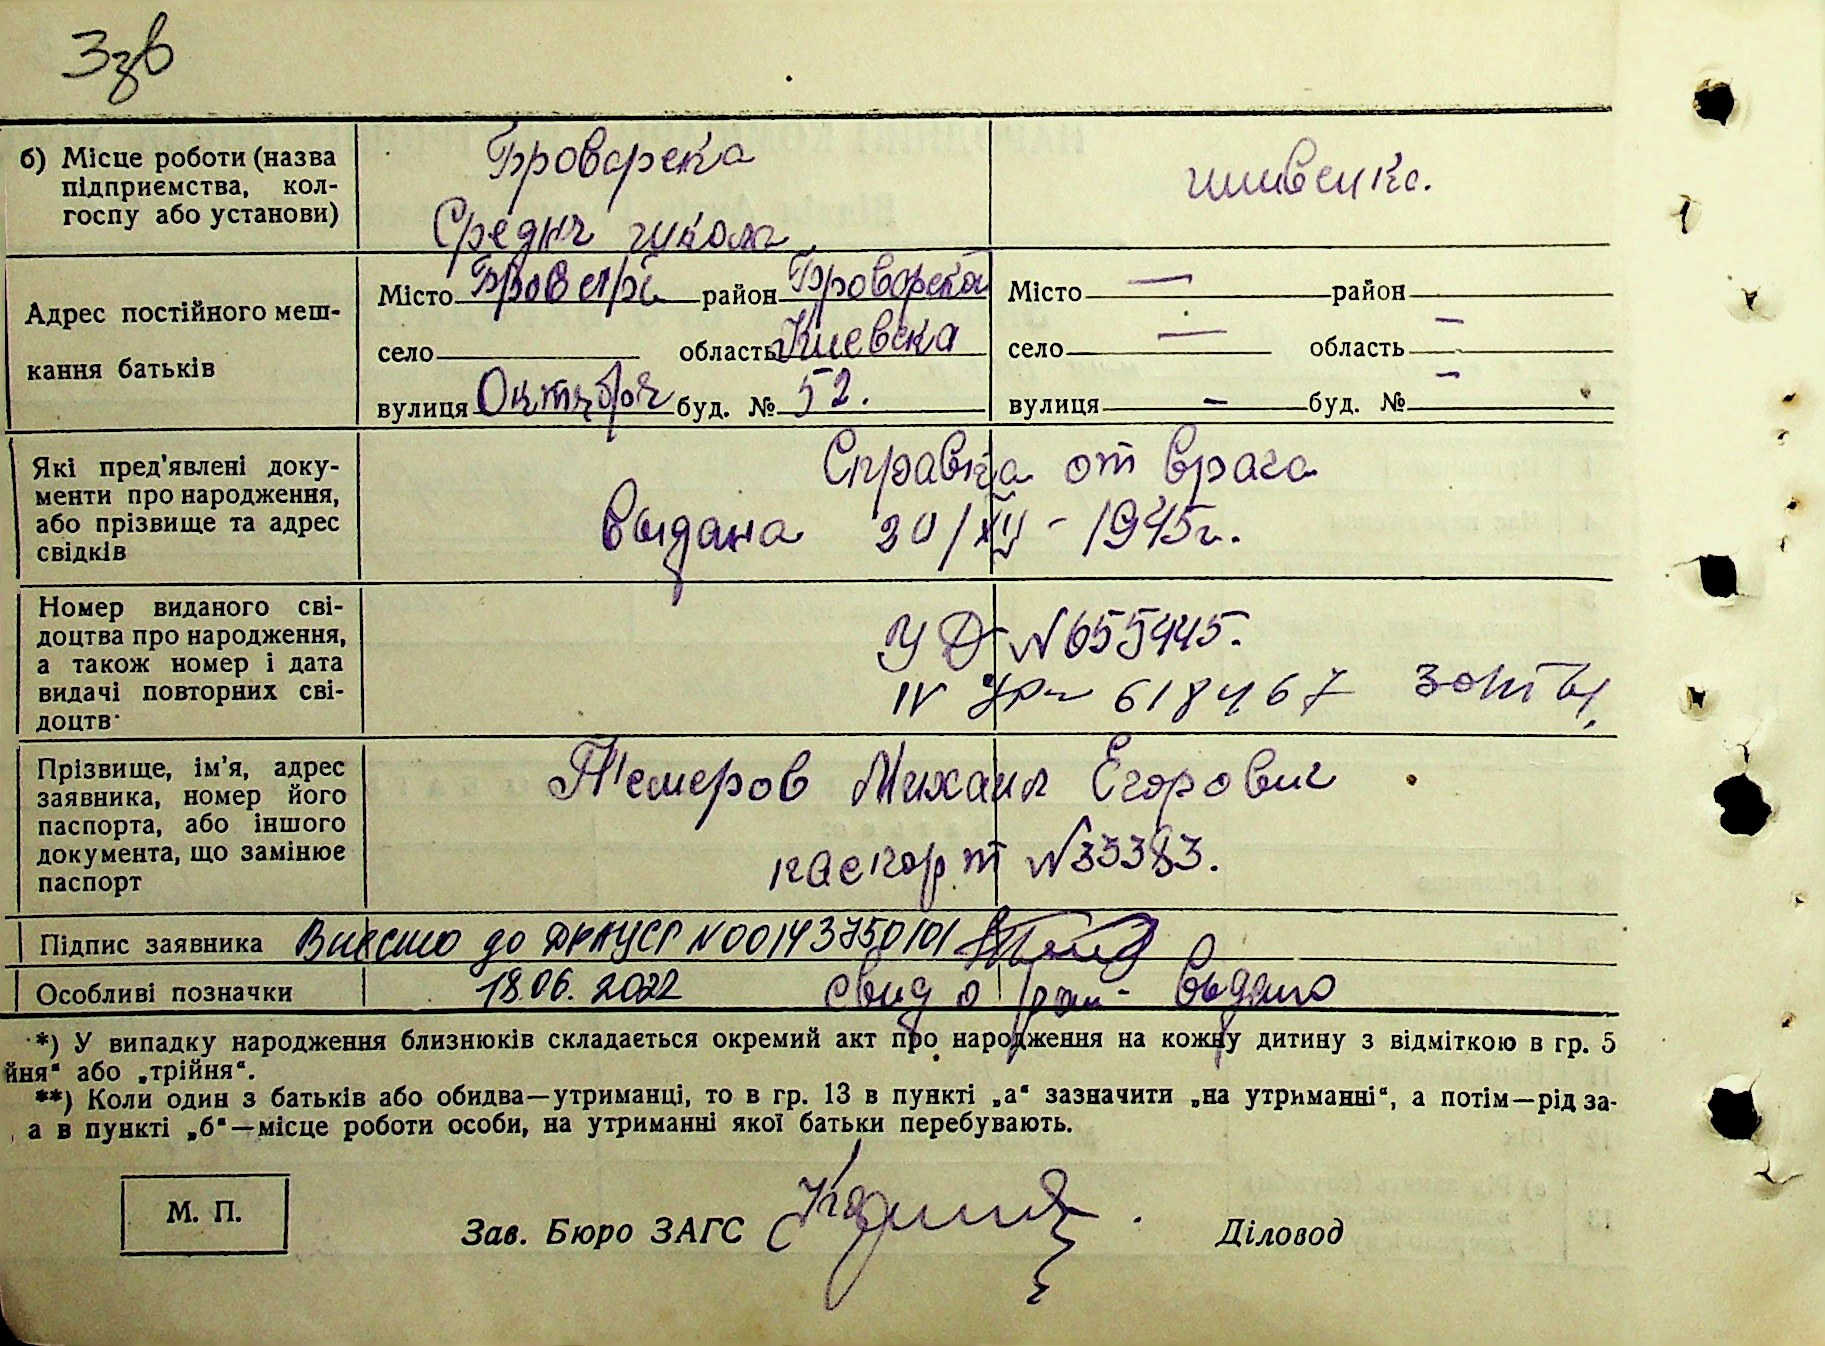 Ззв
б) Місце роботи (назва
підприємства, кол-
госпу або установи)
Броварска
Средня школа
швенка.
Адрес постійного меш-
кання батьків
Місто Бровари район Броварской
село область Киевска
вулиця Октября буд. № 52.
Місто — район
село — область —
вулиця — буд. № —
Які пред'явлені доку-
менти про народження,
або прізвище та адрес
свідків
Справка от врача
выдана 20/XII - 1945г.
Номер виданого сві-
доцтва про народження,
а також номер і дата
видачі повторних сві-
доцтв
УД № 655445.
IV 618467
Прізвище, ім'я, адрес
заявника, номер його
паспорта, або іншого
документа, що замінює
паспорт
Темеров Михаил Егорович
паспорт № 33383.
Підпис заявника Внесено до ДРАЦСГ N00143750101
Особливі позначки 18.06.2022 свид о рож- выдано
*) У випадку народження близнюків складається окремий акт про народження на кожну дитину з відміткою в гр. 5
йня“ або „трійня“.
**) Коли один з батьків або обидва—утриманці, то в гр. 13 в пункті „а“ зазначити „на утриманні“, а потім—рід за-
а в пункті „б“—місце роботи особи, на утриманні якої батьки перебувають.
М. П.
Зав. Бюро ЗАГС
Діловод